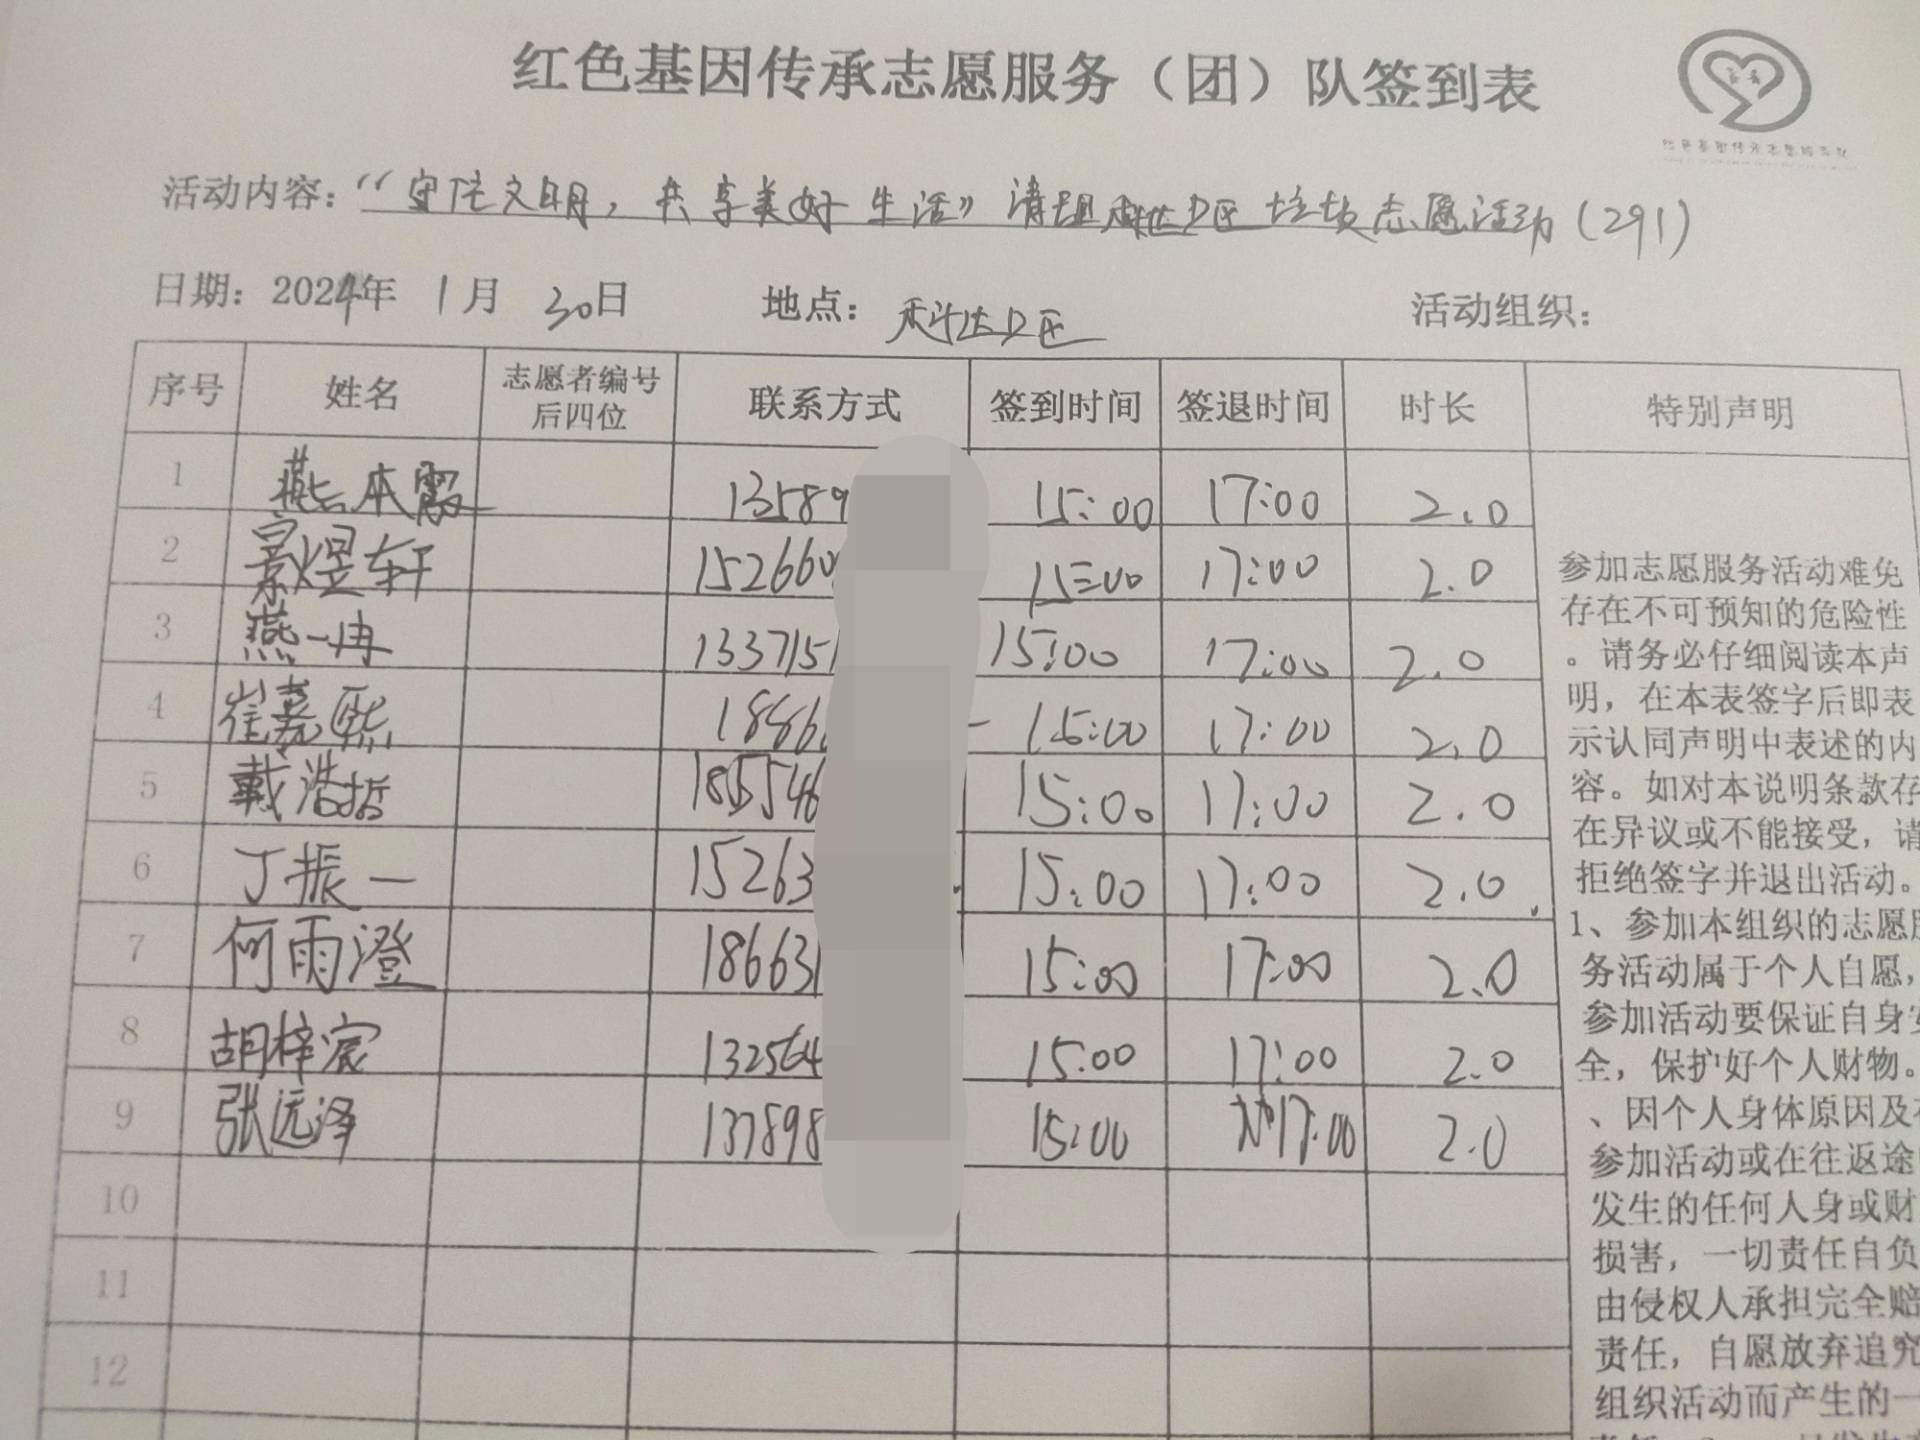 红色基因传承志愿服务（团）队签到表
活动内容：“守住文明，共享美好生活”清理科达D区垃圾志愿活动（291）
日期：2024年 1月 30日 地点：科达D区 活动组织：
序号 姓名 志愿者编号后四位 联系方式 签到时间 签退时间 时长 特别声明
1 燕本霞 13589 15:00 17:00 2.0
2 景煜轩 1526600 15:00 17:00 2.0
3 燕一冉 1337151 15:00 17:00 2.0
4 崔嘉熙 1886 15:00 17:00 2.0
5 戴浩哲 185546 15:00 17:00 2.0
6 丁振一 15263 15:00 17:00 2.0
7 何雨澄 186631 15:00 17:00 2.0
8 胡梓宸 132564 15:00 17:00 2.0
9 张远泽 137898 15:00 17:00 2.0
10
11
12
参加志愿服务活动难免
存在不可预知的危险性
。请务必仔细阅读本声
明，在本表签字后即表
示认同声明中表述的内
容。如对本说明条款存
在异议或不能接受，请
拒绝签字并退出活动。
1、参加本组织的志愿服
务活动属于个人自愿，
参加活动要保证自身安
全，保护好个人财物。
、因个人身体原因及在
参加活动或在往返途
发生的任何人身或财
损害，一切责任自负
由侵权人承担完全赔
责任，自愿放弃追究
组织活动而产生的一